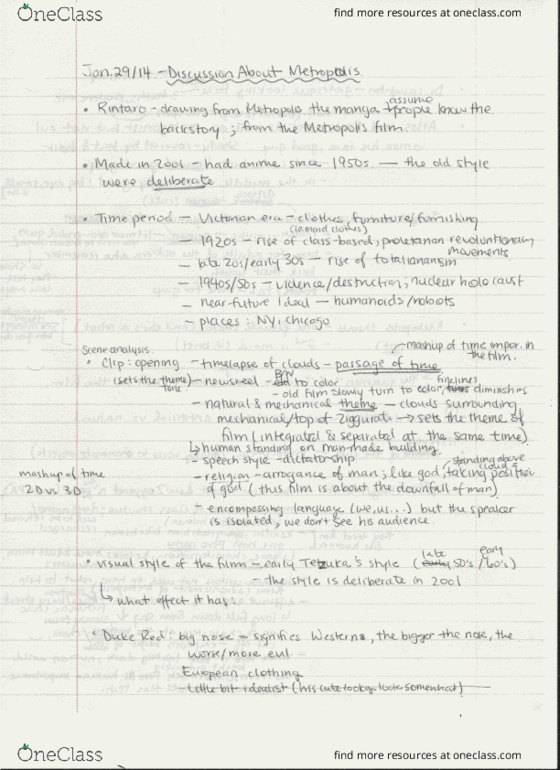 OneClass
find more resources at oneclass.com
Jan.29/14 - Discussion About Metropolis
assume
• Rintaro - drawing from Metropolis the manga + people know the
backstory ; from the Metropolis film.
• Made in 2001 - had anime since 1950s. — the old style
were deliberate
• Time period — Victorian era - clothes, furniture/furnishing
(in maid clothes)
— 1920s - rise of class-based, proletarian revolutionary
movements
— late 20s/early 30s - rise of totalitarianism
— 1940s/50s - violence/destruction; nuclear holocaust
— near-future ideal — humanoids/robots
— places: NY, Chicago
mashup of time impor. in
the film.
Scene analysis
• Clip: opening - timelapse of clouds - passage of time
(sets the theme) - newsreel - B/W to color
tone
- old film slowly turn to color, finelines diminishing
- natural & mechanical theme - clouds surrounding
mechanical/top of Ziggurat → sets the theme of
film (integrated & separated at the same time)
↳ human standing on man-made building
- speech style - dictatorship
standing above
- religion - arrogance of man; like god, taking position
of god (this film is about the downfall of man)
mashup of time
2D vs 3D
- encompassing language (we, us...) but the speaker
is isolated, we don't see his audience.
• visual style of the film - early Tezuka's style (late 50's / early 60's)
- the style is deliberate in 2001
↳ what effect it has:
• Duke Red: big nose - signifies Westerns, the bigger the nose, the
worse/more evil.
European clothing
- little bit idealist (his
OneClass
find more resources at oneclass.com